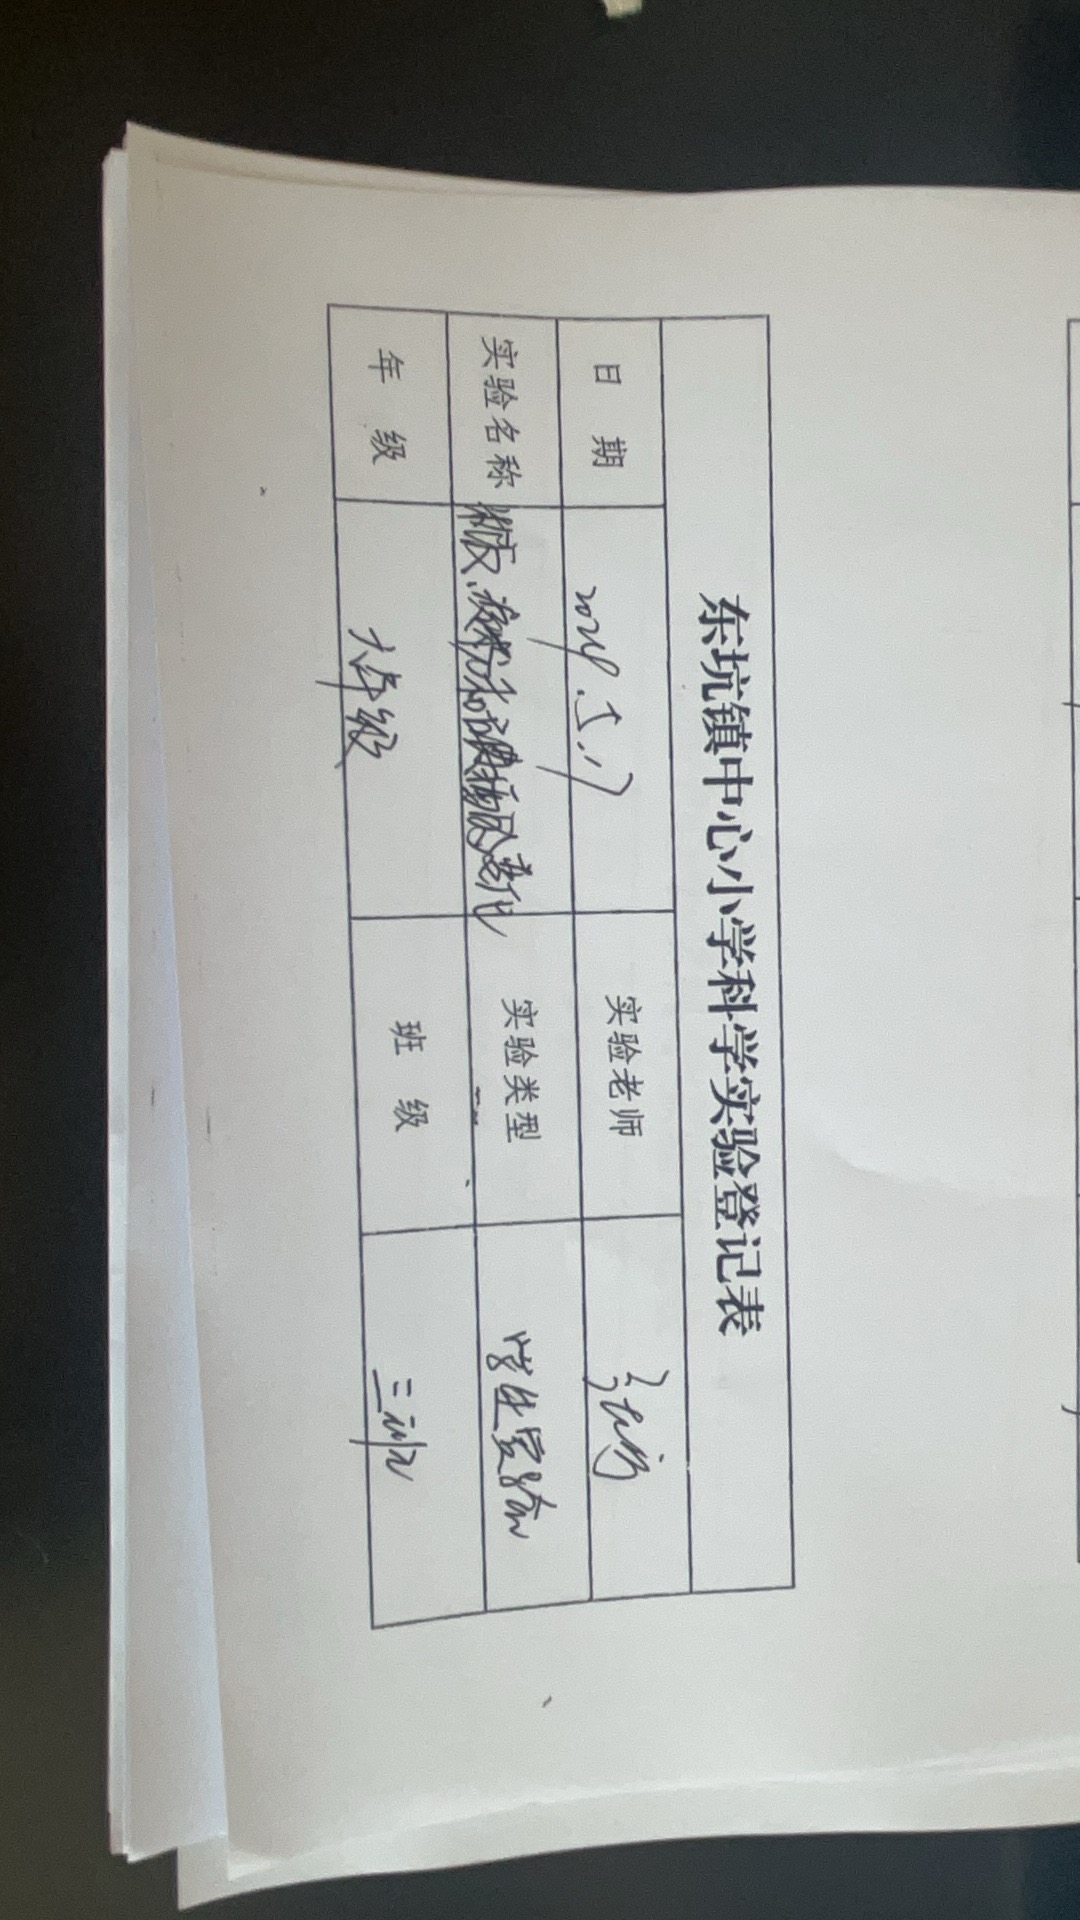 东坑镇中心小学科学实验登记表
日 期 2024.5.17 实验老师
实验名称 实验类型 学生实验
年 级 六年级 班 级 三班